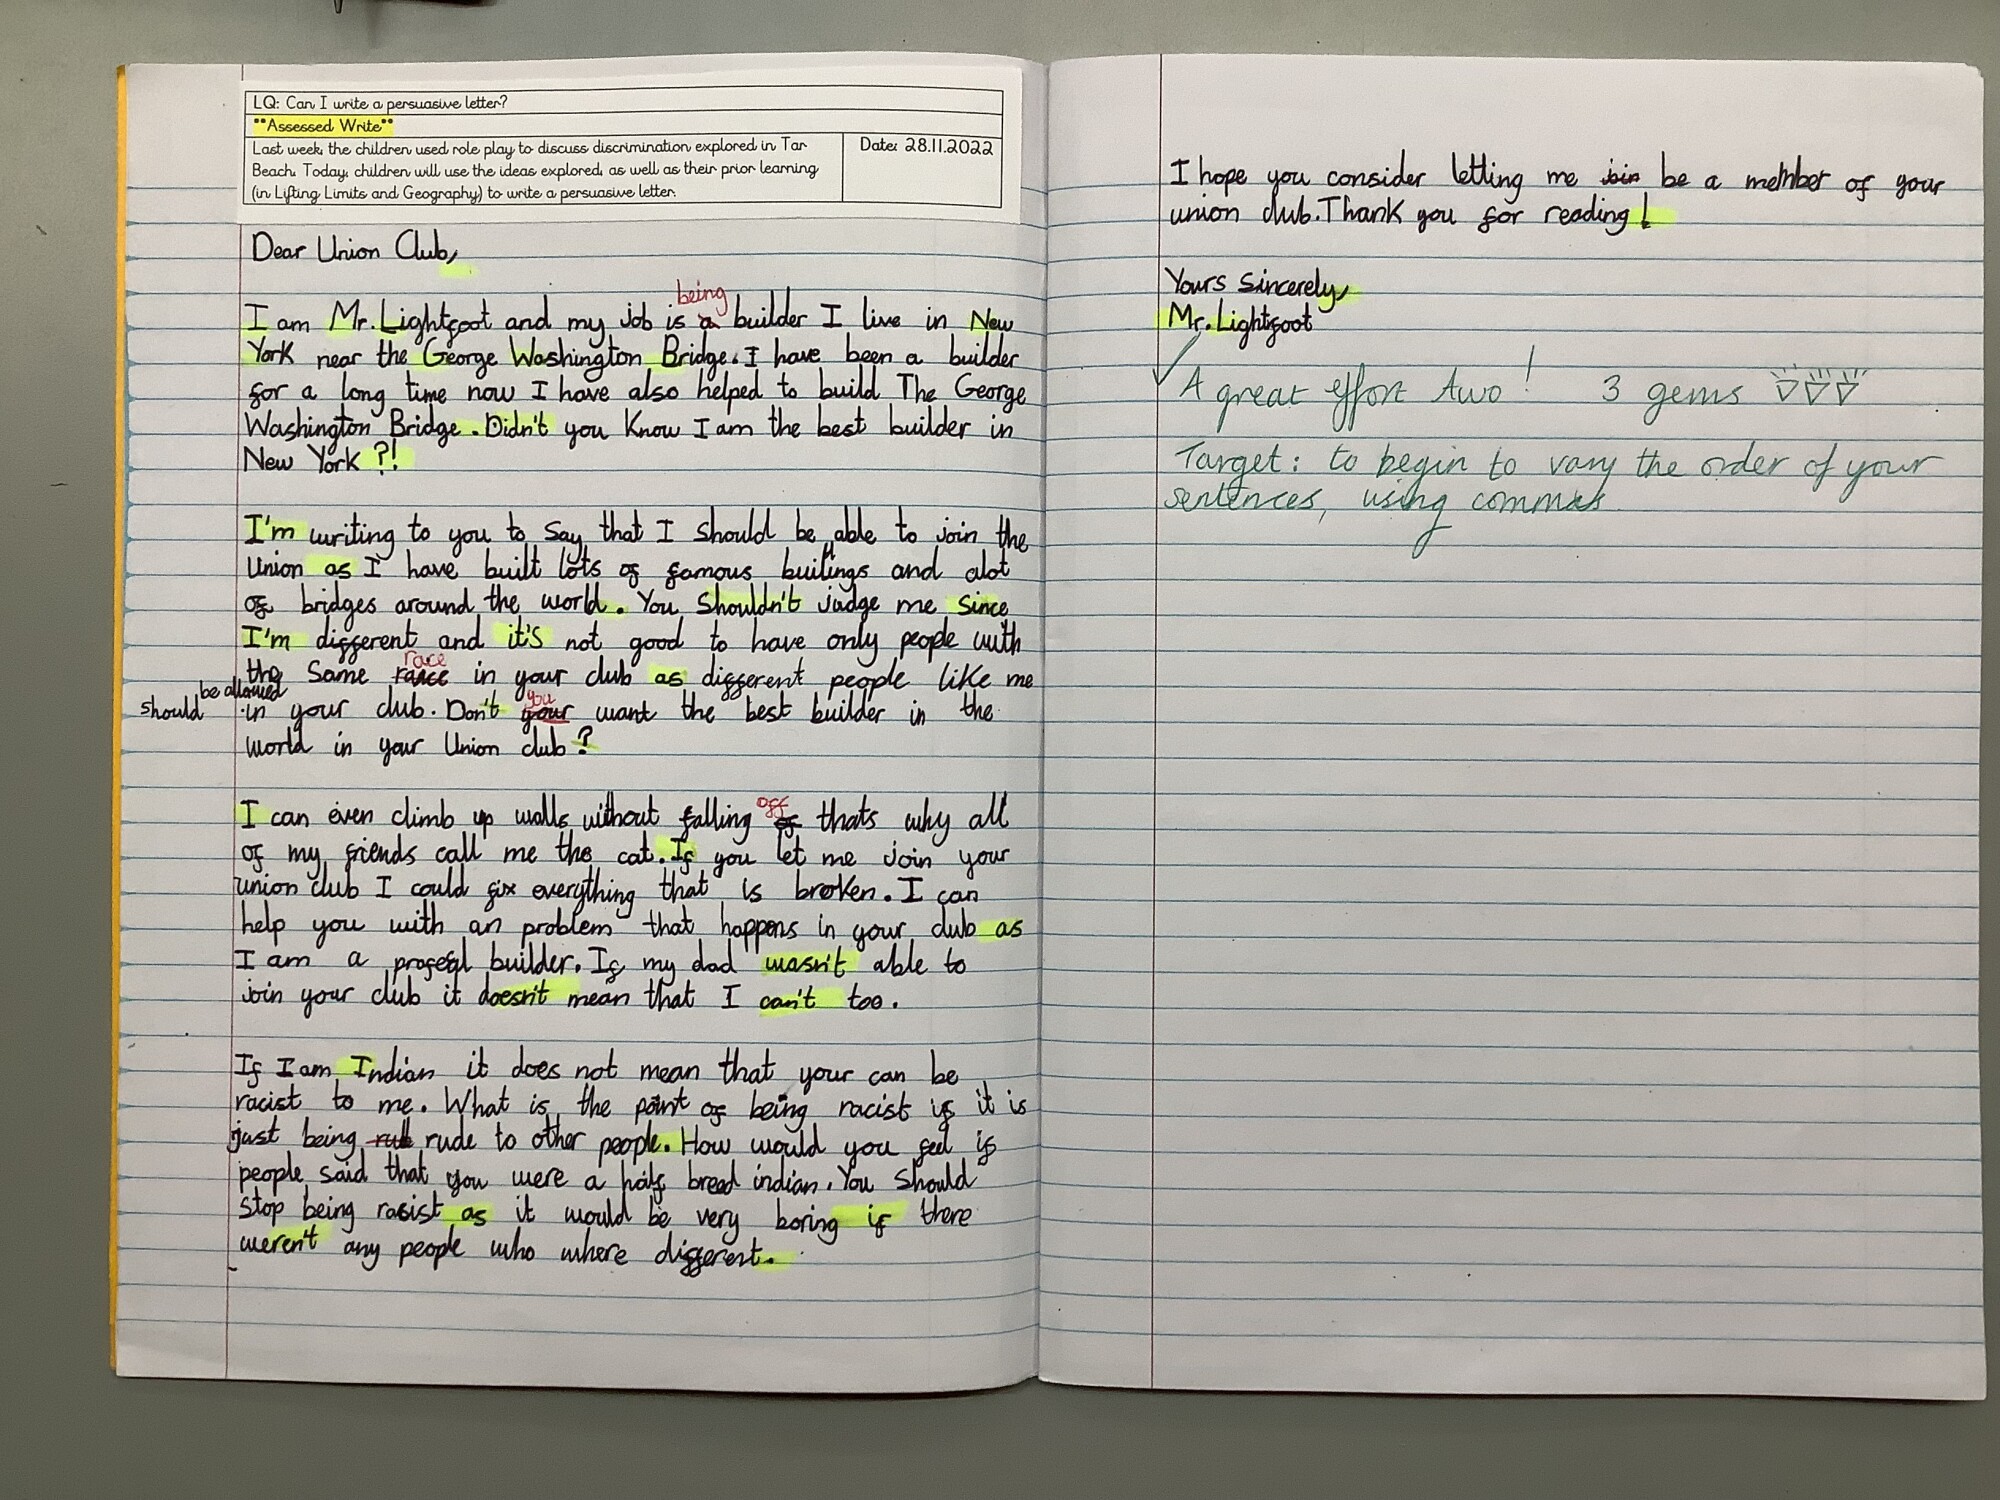 LQ: Can I write a persuasive letter?
**Assessed Write**
Last week, the children used role play to discuss discrimination explored in Tar
Beach. Today, children will use the ideas explored, as well as their prior learning
(in Lifting Limits and Geography) to write a persuasive letter.
Date: 28.11.2022
Dear Union Club,
being
I am Mr. Lightfoot and my job is a builder I live in New
York near the George Washington Bridge. I have been a builder
for a long time now I have also helped to build The George
Washington Bridge. Didn't you know I am the best builder in
New York?!
I'm writing to you to say that I should be able to join the
Union as I have built lots of famous builings and alot
of bridges around the world. You shouldn't judge me since
I'm different and it's not good to have only people with
race
the same in your club as different people like me
should be allowed in your club. Don't your you want the best builder in the
world in your Union club?
off
I can even climb up walls without falling of thats why all
of my friends call me the cat. If you let me join your
union club I could fix everything that is broken. I can
help you with an problem that happens in your club as
I am a builder. If my dad wasn't able to
join your club it doesn't mean that I can't too.
If I am Indian it does not mean that your can be
racist to me. What is the point of being racist if it is
just being rude to other people. How would you feel if
people said that you were a half breed indian. You should
stop being racist as it would be very boring if there
weren't any people who where different.
I hope you consider letting me join be a member of your
union club. Thank you for reading!
Yours Sincerely,
Mr. Lightfoot
A great effort Awo! 3 gems
Target: to begin to vary the order of your
sentences, using commas.